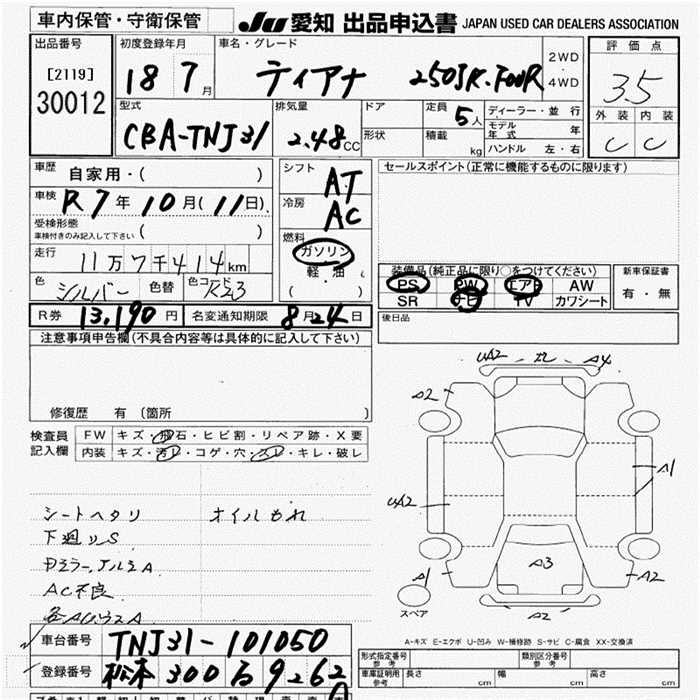 車内保管・守衛保管 JU 愛知 出品申込書 JAPAN USED CAR DEALERS ASSOCIATION
出品番号 初度登録年月 車名・グレード 評価点
[2119] 18 7月 ティアナ 250JK.FOUR 2WD 4WD 3.5
30012
型式 排気量 ドア 定員 ディーラー・並行 外装 内装
CBA-TNJ31 2.48CC 形状 5人 積載 kg モデル年式 年 C C
ハンドル 左・右
車歴 自家用・( ) シフト AT セールスポイント(正常に機能するものに限ります)
車検 R7年10月(11日) 冷房 AC
受検形態
車検付きのみ記入して下さい ( ) 燃料
走行 11万7千414km ガソリン
軽・油
( )
装備品(純正品に限り○をつけてください) 新車保証書
PS PW エアB AW 有・無
SR ナビ TV カワシート
色 シルバー 色替 色コード K23
R券 13,190円 名変通知期限 8月24日 後日品
注意事項申告欄(不具合内容等は具体的に記入して下さい)
修復歴 有 (箇所 )
検査員記入欄 FW キズ・飛石・ヒビ割・リペア跡・X要
内装 キズ・汚レ・コゲ・穴・スレ・キレ・破レ
シートヘタリ オイルもれ
下廻りS
AC不良
UA2 A4
A2
A1
UA2
A3
A1 A2
A2
スペア
A-キズ E-エクボ U-凹み W-補修跡 S-サビ C-腐食 XX-交換済
車台番号 TNJ31-101050
登録番号 松本 300 ろ 9262
形式指定番号 参考 類別区分番号 参考
車庫証明用 参考 長さ cm 幅 cm 高さ cm